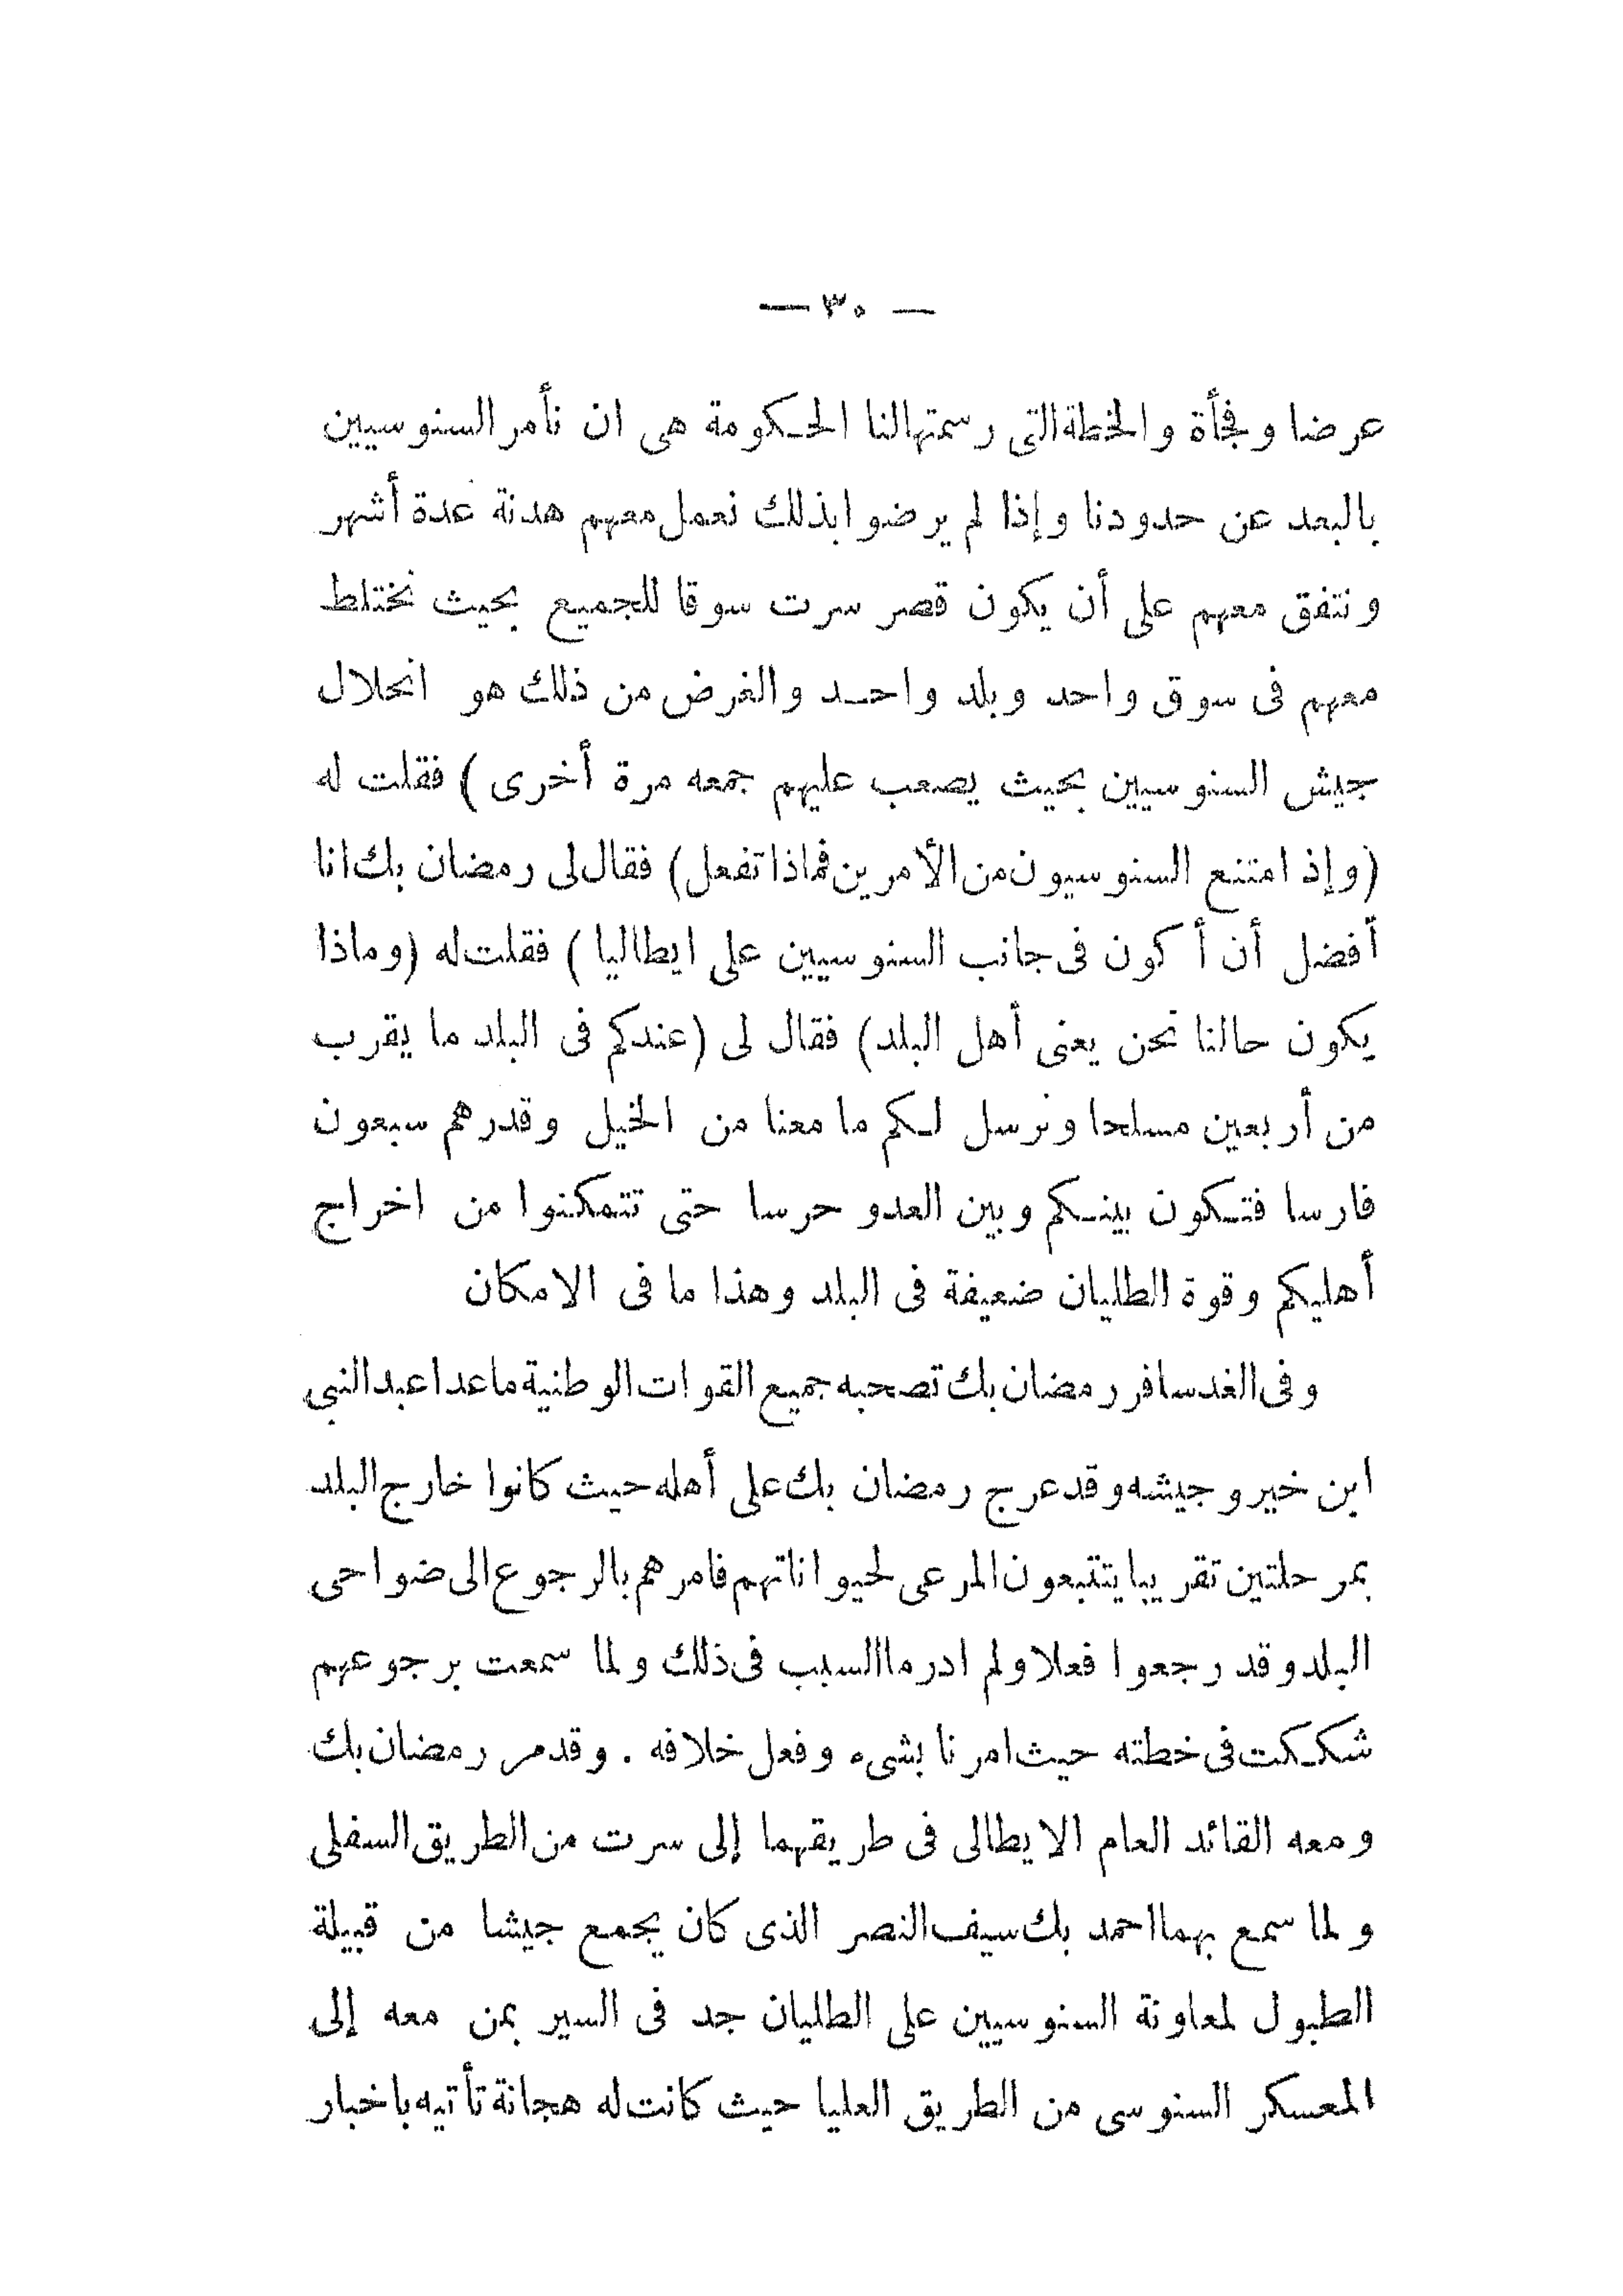 — ٣٠ —
عرضا وفجأة والخطة التى رسمتها لنا الحكومة هى ان نأمر السنوسيين
بالبعد عن حدودنا وإذا لم يرضوا بذلك نعمل معهم هدنة عدة أشهر
ونتفق معهم على أن يكون قصر سرت سوقا للجميع بحيث نختلط
معهم فى سوق واحد وبلد واحد والغرض من ذلك هو انحلال
جيش السنوسيين بحيث يصعب عليهم جمعه مرة أخرى ) فقلت له
(وإذ امتنع السنوسيون من الأمرين فماذا تفعل) فقال لى رمضان بك انا
أفضل أن أكون فى جانب السنوسيين على ايطاليا ) فقلت له (وماذا
يكون حالنا نحن يعنى أهل البلد) فقال لى (عندكم فى البلد ما يقرب
من أربعين مسلحا ونرسل لكم ما معنا من الخيل وقدرهم سبعون
فارسا فتكون بينكم وبين العدو حرسا حتى تتمكنوا من اخراج
أهليكم وقوة الطليان ضعيفة فى البلد وهذا ما فى الامكان
وفى الغد سافر رمضان بك تصحبه جميع القوات الوطنية ماعدا عبد النبى
ابن خير وجيشه وقد عرج رمضان بك على أهله حيث كانوا خارج البلد
بمرحلتين تقريبا يتتبعون المرعى لحيواناتهم فامرهم بالرجوع الى ضواحى
البلد وقد رجعوا فعلا ولم ادر ما السبب فى ذلك ولما سمعت برجوعهم
شككت فى خطته حيث امرنا بشىء وفعل خلافه . وقد مر رمضان بك
ومعه القائد العام الايطالى فى طريقهما إلى سرت من الطريق السفلى
ولما سمع بهما احمد بك سيف النصر الذى كان يجمع جيشا من قبيلة
الطبول لمعاونة السنوسيين على الطليان جد فى السير بمن معه إلى
المعسكر السنوسى من الطريق العليا حيث كانت له هجانة تأتيه باخبار